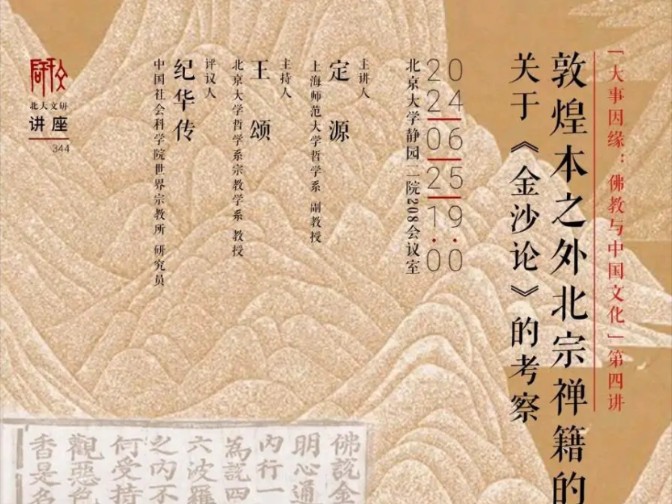 「大事因缘：佛教与中国文化」第四讲
敦煌本之外北宗禅籍的
关于《金沙论》的考察
20
24
06
25
19:00
北京大学静园一院208会议室
主讲人
定源
上海师范大学哲学系 副教授
主持人
王颂
北京大学哲学系宗教学系 教授
评议人
纪华传
中国社会科学院世界宗教所 研究员
北大文研
讲座
344
佛說金
明心通
內行一
為説四
六波羅
之内不
何受持
觀惡色
香是名